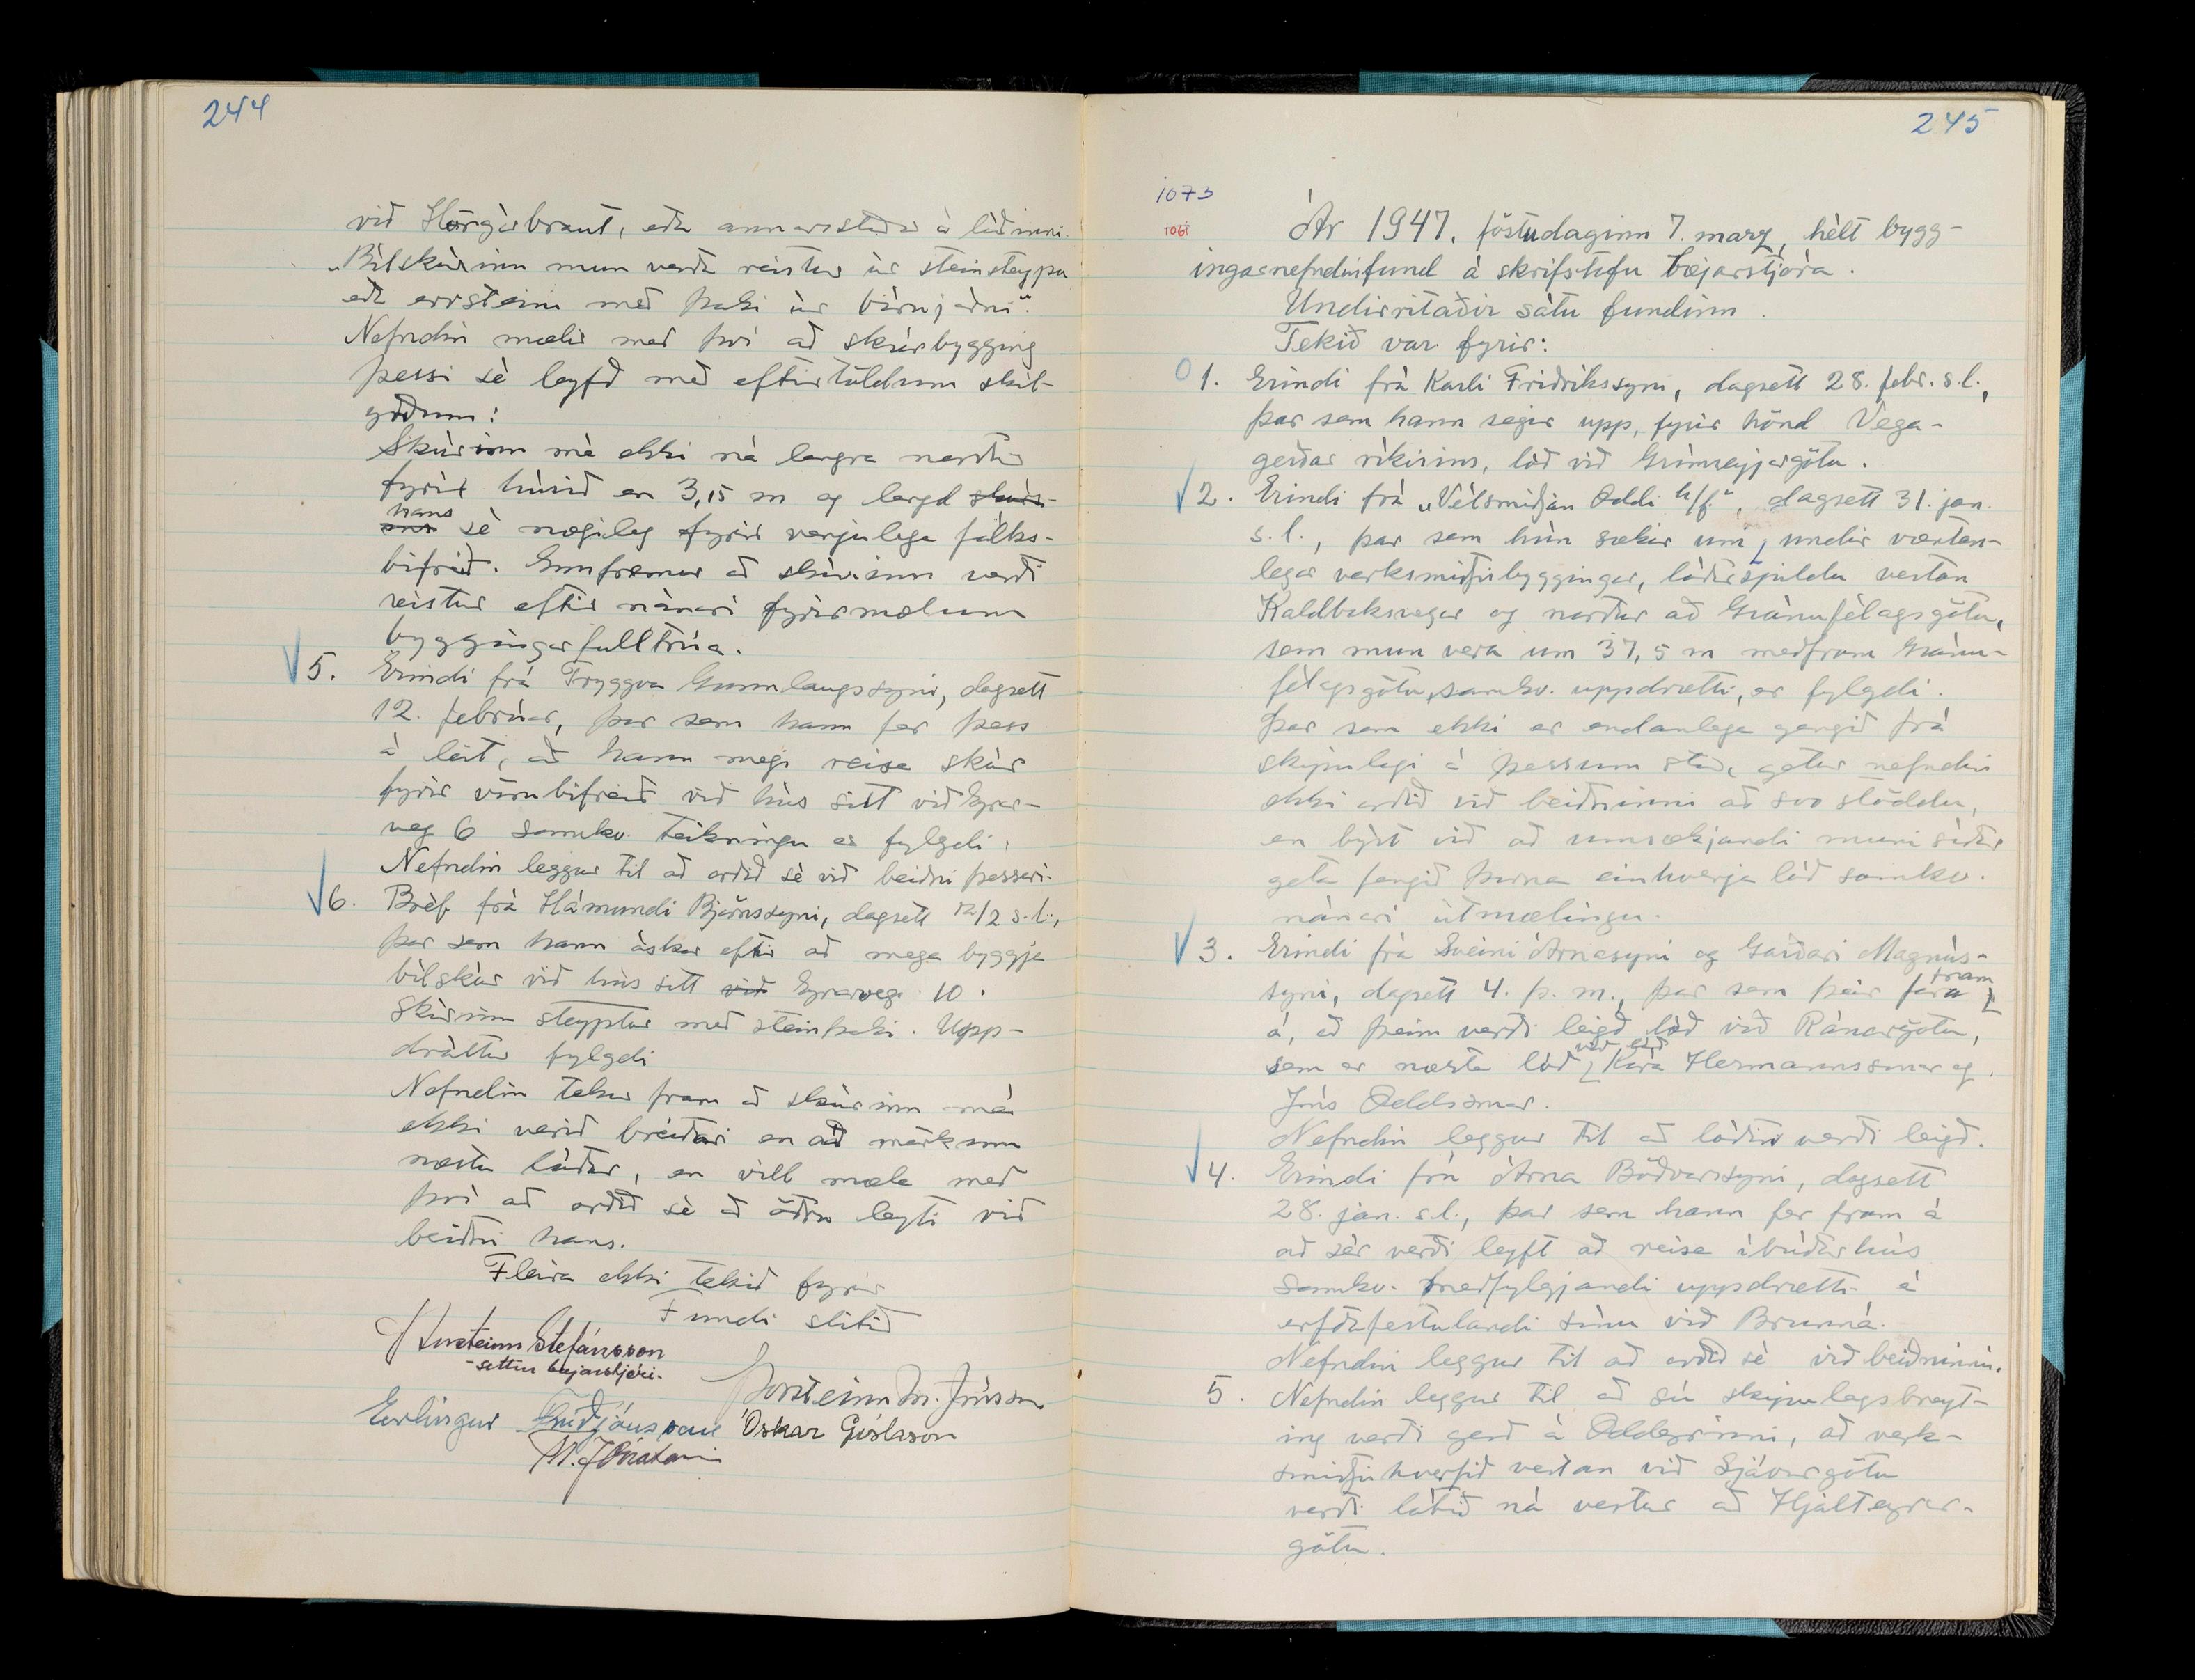 244
við Hörgárbraut, eða annarsstaðar á lóðinni.
„Bílskúrinn mun verða reistur úr steinsteypu
eða errsteini með þaki úr bárujárni“.
Nefndin mælir með því að skúrbygging
þessi sé leyfð með eftirtöldum skil-
yrðum:
Skúrinn má ekki ná lengra norður
fyrir húsið en 3,15 m og lengd skúrs-
hans
ans sé nægileg fyrir venjulega fólks-
bifreið. Ennfremur að skúrinn verði
reistur eftir nánari fyrirmælum
byggingarfulltrúa.
5. Erindi frá Tryggva Gunnlaugssyni, dagsett
12. febrúar, þar sem hann fer þess
á leit, að hann megi reisa skúr
fyrir vörubifreið við hús sitt við Eyrar-
veg 6 samkv. teikningu er fylgdi.
Nefndin leggur til að orðið sé við beiðni þessari.
6. Bréf frá Hámundi Björnssyni, dagsett 12/2 s.l.,
þar sem hann óskar eftir að mega byggja
bílskúr við hús sitt við Eyrarveg 10.
Skúrinn steyptur með steinþaki. Upp-
dráttur fylgdi
Nefndin tekur fram að skúrinn má
ekki verið breiðari en að mörkum
næstu lóðar, en vill mæla með
því að orðið sé að öðru leyti við
beiðni hans.
Fleira ekki tekið fyrir
Fundi slitið
Þorsteinn Stefánsson
- settur bæjarstjóri -
Þorsteinn M. Jónsson
Erlingur Friðjónsson Óskar Gíslason
245
1073
Ár 1947, föstudaginn 7. marz, hélt bygg-
ingarnefndin fund á skrifstofu bæjarstjóra.
Undirritaðir sátu fundinn.
Tekið var fyrir:
1. Erindi frá Karli Friðrikssyni, dagsett 28. febr. s.l.,
þar sem hann segir upp, fyrir hönd Vega-
gerðar ríkisins, lóð við Grímseyjargötu.
2. Erindi frá „Vélsmiðjan Oddi h/f.“, dagsett 31. jan.
s.l., þar sem hún sækir um, undir væntan-
legar verksmiðjubyggingar, lóðarspildu vestan
Kaldbaksvegar og norður að Gránufélagsgötu,
sem mun vera um 37,5 m meðfram Gránu-
félagsgötu, samkv. uppdrætti, er fylgdi.
Þar sem ekki er endanlega gengið frá
skipulagi á þessum stað, getur nefndin
ekki orðið við beiðninni að svo stöddu,
en býst við að umsækjandi muni síðar
geta fengið þarna einhverja lóð samkv.
nánari útmælingu.
3. Erindi frá Sveini Árnasyni og Garðari Magnús-
fram
syni, dagsett 4. þ. m., þar sem þeir fara
á, að þeim verði leigð lóð við Ránargötu,
við lóð
sem er næsta lóð Kára Hermannssonar og
Jóns Oddssonar.
Nefndin leggur til að lóðin verði leigð.
4. Erindi frá Árna Böðvarssyni, dagsett
28. jan. s.l., þar sem hann fer fram á
að sér verði leyft að reisa íbúðarhús
samkv. meðfylgjandi uppdrætti á
erfðafestulandi sínu við Brunná.
Nefndin leggur til að orðið sé við beiðninni.
5. Nefndin leggur til að sú skipulagsbreyt-
ing verði gerð á Oddeyrinni, að verk-
smiðjuhverfið vestan við Sjávargötu
verði látið ná vestur að Hjalteyrar-
götu.